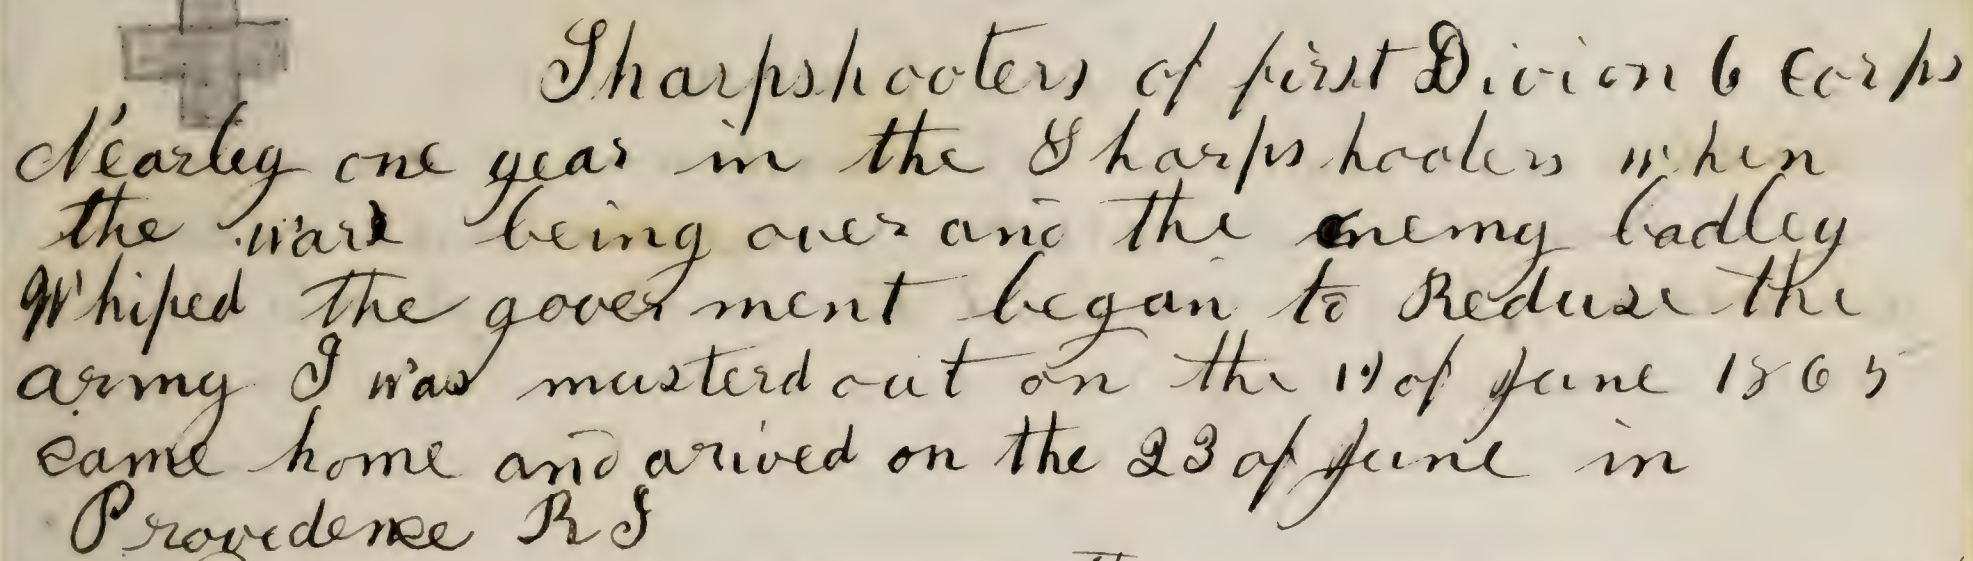 Sharpshooters of first Divion 6 Corps
Nearley one year in the Sharpshooters when
the ware being over and the enemy badley
Whiped the goverment began to Reduse the
army I was musterd out on the of June 1865
came home and arived on the 23 of June in
Providense R I